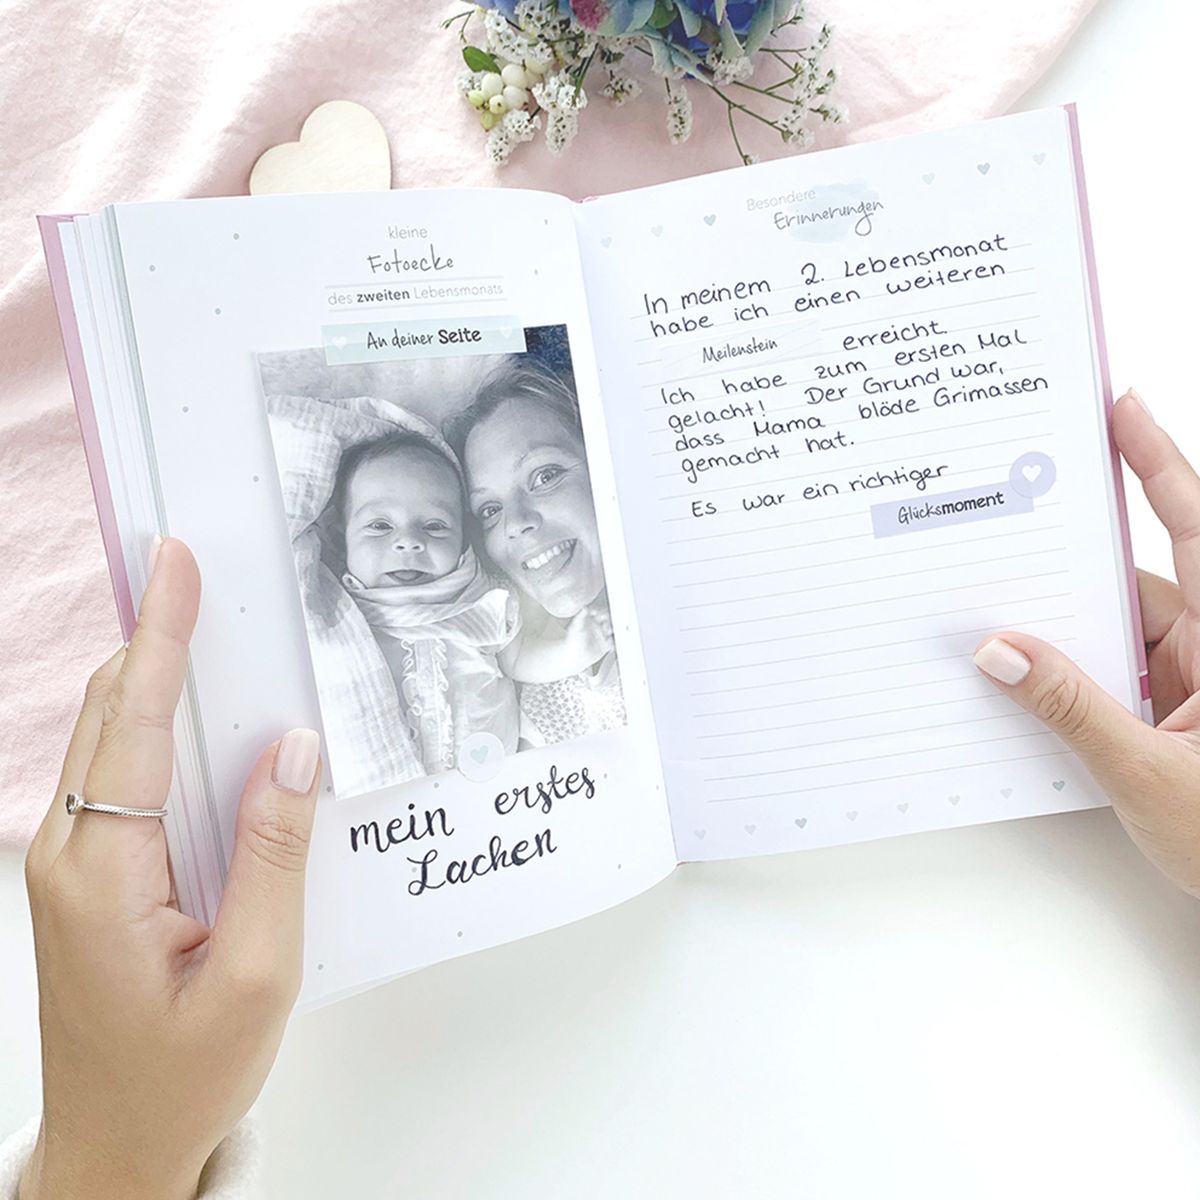 kleine
Fotoecke
des zweiten Lebensmonats
An deiner Seite
mein erstes
Lachen
Besondere
Erinnerungen
In meinem 2. Lebensmonat
habe ich einen weiteren
Meilenstein erreicht.
Ich habe zum ersten Mal
gelacht! Der Grund war,
dass Mama blöde Grimassen
gemacht hat.
Es war ein richtiger
Glücksmoment